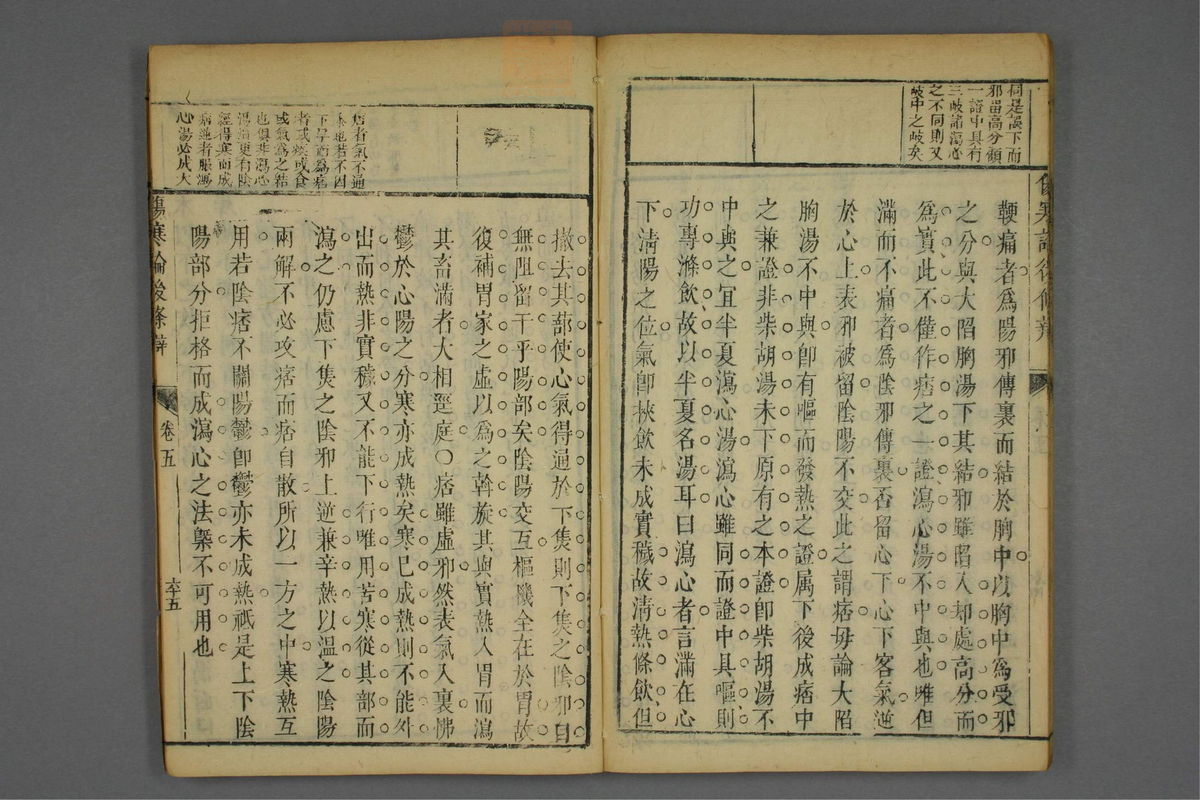 伺是誤下而
邪留高分頗
一證中具有
三岐諸瀉心
之不同則又
岐中之岐矣
鞕痛者爲陽邪傳裏而結於胸中以胸中爲受邪
之分與大陷胸湯下其結邪雖陷入却處高分而
爲實此不僅作痞之一證瀉心湯不中與也唯但
滿而不痛者爲陰邪傳裏否留心下心下客氣逆
於心上表邪被留陰陽不交此之謂痞毋論大陷
胸湯不中與卽有嘔而發熱之證属下後成痞中
之兼證非柴胡湯未下原有之本證卽柴胡湯不
中與之宜半夏瀉心湯瀉心雖同而證中具嘔則
功專滌飲故以半夏名湯耳曰瀉心者言滿在心
下清陽之位氣卽挾飲未成實穢故清熱條飲但
痞者氣不通
泰也若不因
下早而爲痞
者或痰或食
或氣爲之結
也俱非瀉心
湯治更有陰
經得寒而成
痞逆者服瀉
心湯必成大
撤去其蔀使心氣得通於下焦則下焦之陰邪自
無阻留干乎陽部矣陰陽交互樞機全在於胃故
復補胃家之虛以爲之斡旋其與實熱入胃而瀉
其畜滿者大相逕庭〇痞雖虛邪然表氣入裏怫
鬱於心陽之分寒亦成熱矣寒已成熱則不能外
出而熱非實穢又不能下行唯用苦寒從其部而
瀉之仍慮下焦之陰邪上逆兼辛熱以溫之陰陽
兩解不必攻痞而痞自散所以一方之中寒熱互
用若陰痞不關陽鬱卽鬱亦未成熱祇是上下陰
陽部分拒格而成瀉心之法槩不可用也
傷寒論後條辨
卷五
六十五